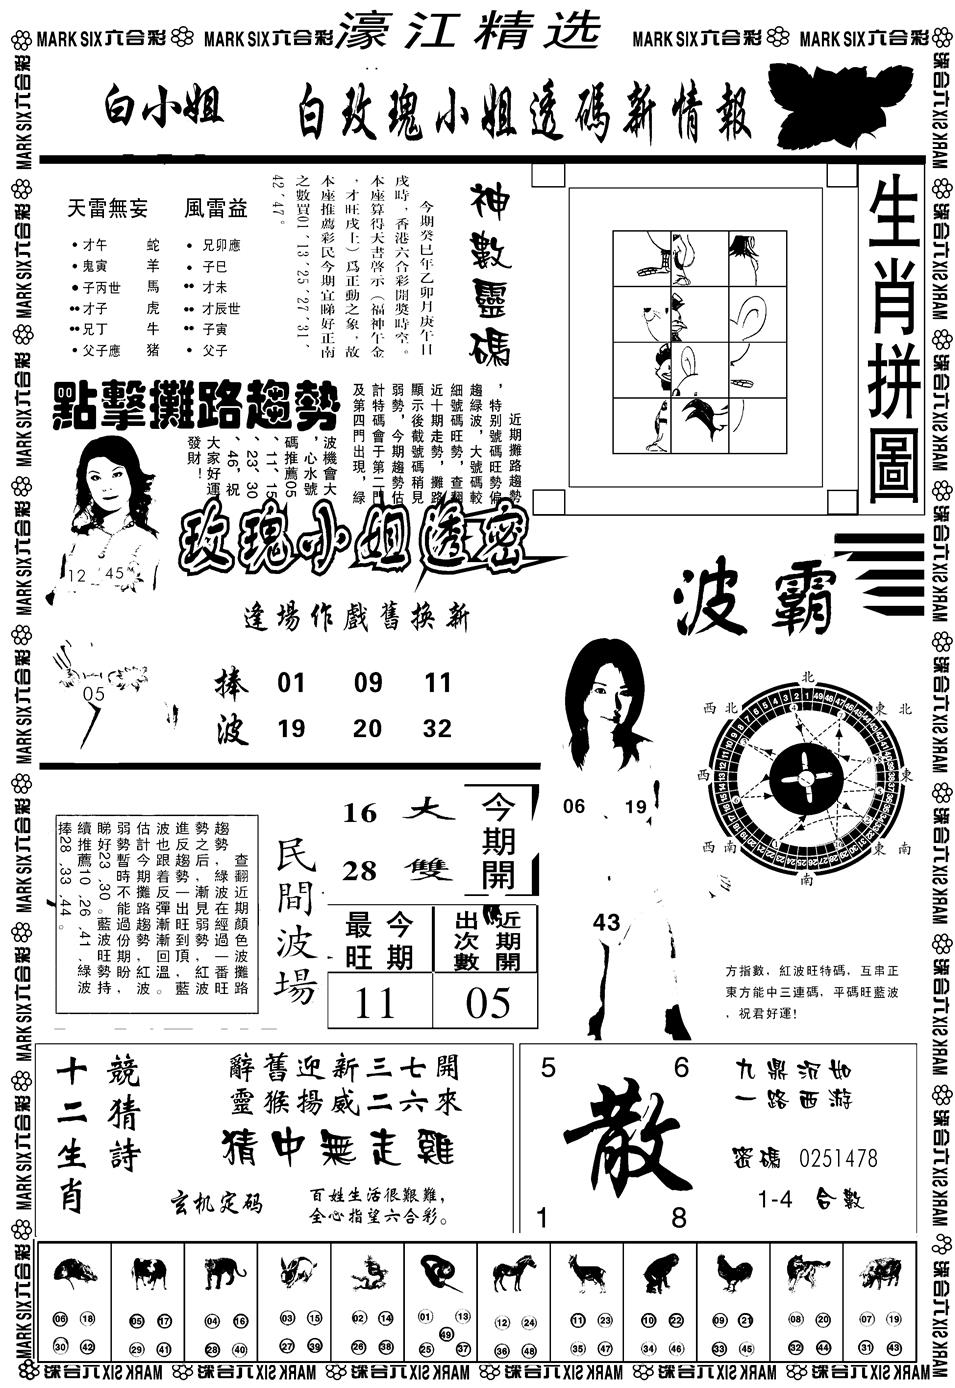 濠江精选
MARK SIX六合彩 MARK SIX六合彩 MARK SIX六合彩 MARK SIX六合彩
白小姐 白玫瑰小姐透碼新情報
天雷無妄 風雷益
・才午 蛇 ・兄卯應
・鬼寅 羊 ・子巳
●子丙世 馬 ••才未
••才子 虎 ••才辰世
••兄丁 牛 ••子寅
・父子應 猪 ・父子
神數靈碼
今期癸巳年乙卯月庚午日
戌時，香港六合彩開獎時空。
本座算得天書啓示（福神午金
，才旺戌上）爲正動之象，故
本座推薦彩民今期宜睇好正南
之數買01，13，25，27，31，
42，47。
生肖拼圖
點擊攤路趨勢
近期攤路趨勢
，特别號碼旺勢偏
趨綠波，大號碼較
細號碼旺勢，查翻
近十期走勢，攤路
顯示後截號碼稍見
弱勢，今期趨勢估
計特碼會于第二門
及第四門出現，綠
波機會大
，心水號
碼推薦05
、11、15
、23、30
、46，祝
大家好運
發財！
12 45
玫瑰小姐透密
逢場作戲舊换新
05
捧 01 09 11
波 19 20 32
波霸
北
西北 東北
西 東
西南 東南
南
06 19
43
方指數，紅波旺特碼，互串正
東方能中三連碼，平碼旺藍波
，祝君好運！
查翻近期顏色波攤路
趨勢，綠波在經過一番旺
勢之后，漸見弱勢，紅波
進反趨勢一出旺到頂，藍
波也跟着反彈漸漸回溫。
估計今期攤路趨勢紅波
弱勢暫時不能過份期盼，
睇好23，30。藍波旺勢持
續推薦10，26，41，綠波
捧28，33，44。
民間波場
16 大 今期開
28 雙
最旺 今期 出次數 近期開
11 05
競猜詩
十二生肖
辭舊迎新三七開
靈猴揚威二六來
猜中無走雞
玄机定码 百姓生活很艱難，
全心指望六合彩。
5 6
散
1 8
九鼎沉如
一路西游
密碼 0251478
1-4 合數
06 18 05 17 04 16 03 15 02 14 01 13 12 24 11 23 10 22 09 21 08 20 07 19
49
30 42 29 41 28 40 27 39 26 38 25 37 36 48 35 47 34 46 33 45 32 44 31 43
MARK SIX六合彩 MARK SIX六合彩 MARK SIX六合彩 MARK SIX六合彩 MARK SIX六合彩 MARK SIX六合彩